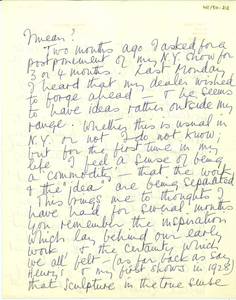 I mean?
Two months ago I asked for a
postponement of my N.Y. show for
3 or 4 months. Last Monday
I heard that my dealer wished
to forge ahead & he seems
to have ideas rather outside my
range. Whether this is usual in
N.Y. or not I do not know;
but for the first time in my
life I feel a sense of being
a "commodity" – that the work
& the "idea" are being separated
This brings me to thoughts I
have had for several months
you remember the inspiration
which lay behind our early
work – the certainty which
we all felt – (as far back as say
Henry's & my first shows in 1928)
that sculpture in the true sense